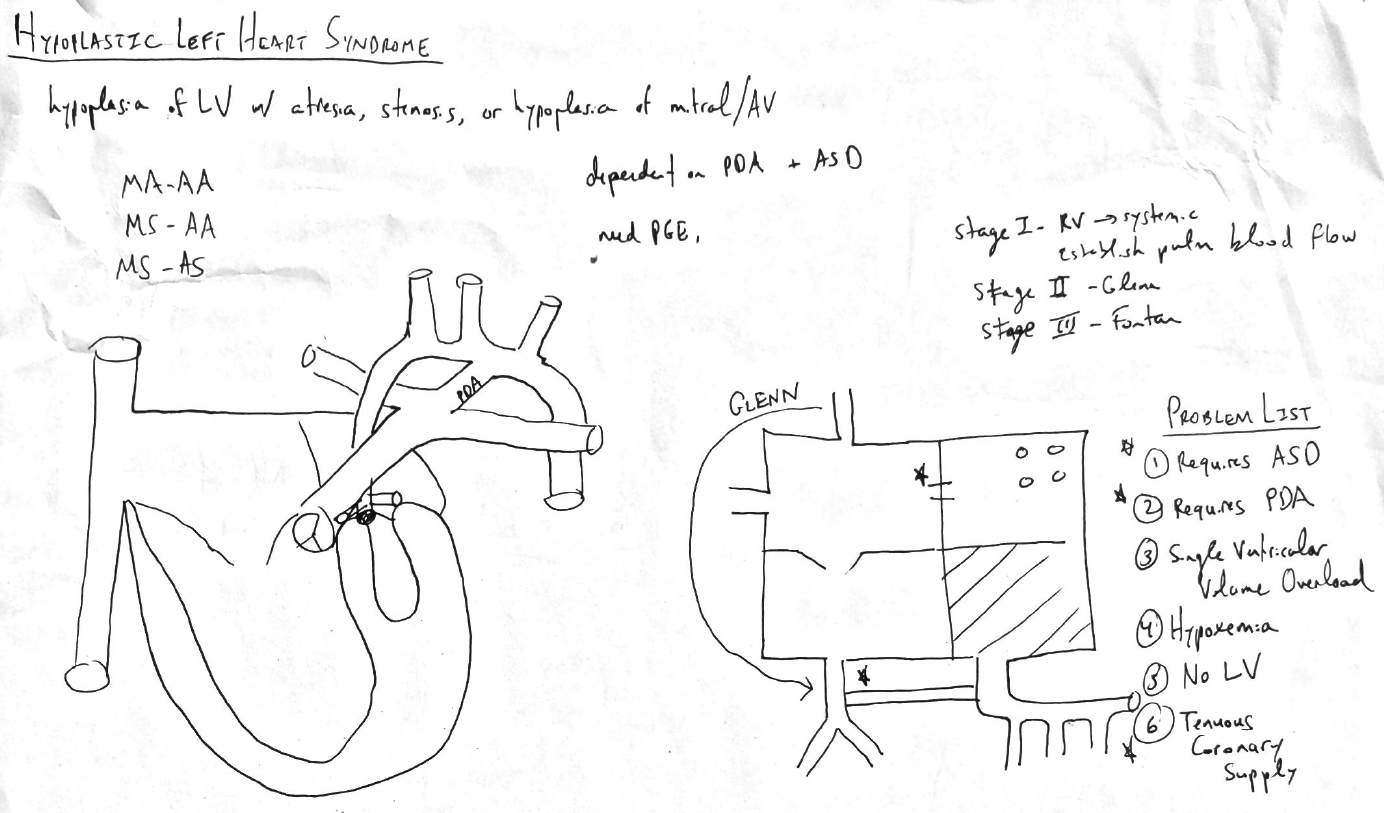 HYPOPLASTIC LEFT HEART SYNDROME
hypoplasia of LV w/ atresia, stenosis, or hypoplasia of mitral/AV
MA-AA
MS-AA
MS-AS
dependent on PDA + ASD
need PGE,
stage I - RV → systemic
establish pulm blood flow
stage II - Glenn
stage III - Fontan
PDA
GLENN
PROBLEM LIST
① Requires ASD
② Requires PDA
③ Single Ventricular
Volume Overload
④ Hypoxemia
⑤ No LV
⑥ Tenuous
Coronary
Supply